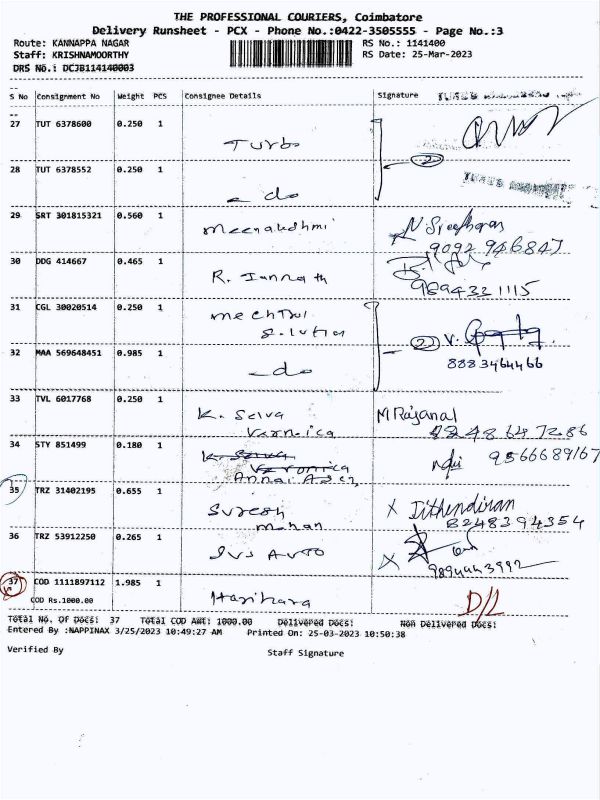 THE PROFESSIONAL COURIERS, Coimbatore
Delivery Runsheet - PCX - Phone No.:0422-3505555 - Page No.:3
Route: KANNAPPA NAGAR RS No.: 1141400
Staff: KRISHNAMOORTHY RS Date: 25-Mar-2023
DRS No.: DCJB114140003
S No Consignment No Weight PCS Consignee Details Signature
27 TUT 6378600 0.250 1 Turbo
28 TUT 6378552 0.250 1 - do 2
29 SRT 301815321 0.560 1 N. Sreedharan
9092 946847
30 DDG 414667 0.465 1 R.
9894321115
31 CGL 30020514 0.250 1
32 MAA 569648451 0.985 1 - do 2 V.
8883464466
33 TVL 6017768 0.250 1 K. Selva M Rajanal
8248647286
34 STY 851499 0.180 1 K. Selva 9566689167
Annai
35 TRZ 31402195 0.655 1 Suresh X Jithendiran
mohan 8248394354
36 TRZ 53912250 0.265 1 Auto X
9894443992
37 COD 1111897112 1.985 1 Harihara D/L
COD Rs.1000.00
Total No. Of Docs: 37 Total COD Amt: 1000.00 Delivered Docs: Non Delivered Docs:
Entered By :NAPPINAX 3/25/2023 10:49:27 AM Printed On: 25-03-2023 10:50:38
Verified By Staff Signature